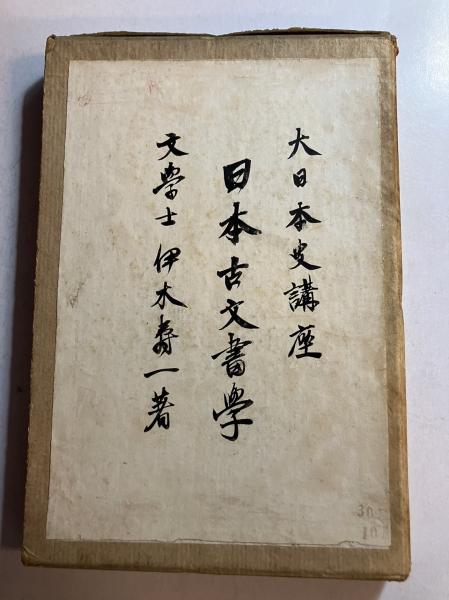 大日本史講座
日本古文書学
文學士 伊木壽一著
30
10